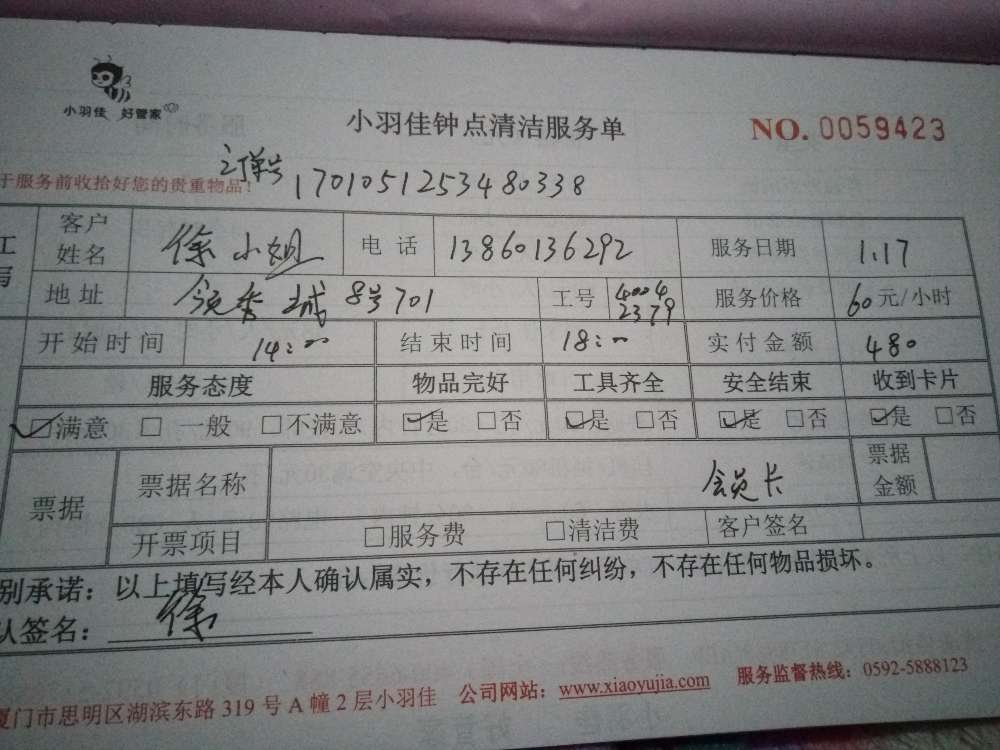 小羽佳 好管家
小羽佳钟点清洁服务单 NO. 0059423
于服务前收拾好您的贵重物品! 订单号 1701051253480338
客户姓名 徐小姐 电话 13860136292 服务日期 1.17
地址 领秀城 8号701 工号 4004 2379 服务价格 60元/小时
开始时间 14:00 结束时间 18:00 实付金额 480
服务态度 物品完好 工具齐全 安全结束 收到卡片
☑满意 □一般 □不满意 ☑是 □否 ☑是 □否 ☑是 □否 ☑是 □否
票据 票据名称 会员卡 票据金额
开票项目 □服务费 □清洁费 客户签名
别承诺：以上填写经本人确认属实，不存在任何纠纷，不存在任何物品损坏。
认签名： 徐
厦门市思明区湖滨东路 319 号 A 幢 2 层小羽佳 公司网站：www.xiaoyujia.com 服务监督热线：0592-5888123